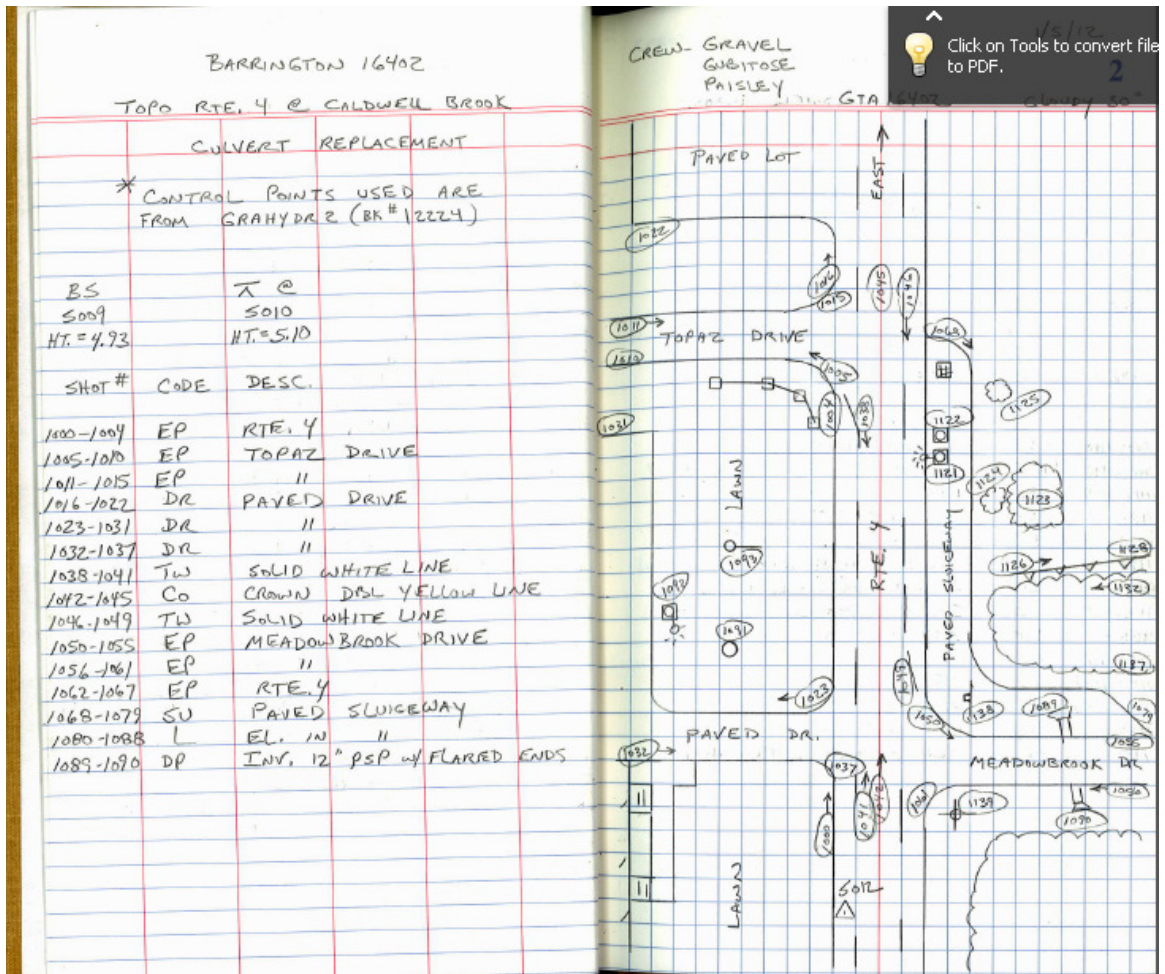 BARRINGTON 16402
TOPO RTE. 4 @ CALDWELL BROOK
CULVERT REPLACEMENT
* CONTROL POINTS USED ARE
FROM GRAHYDR2 (BK# 12224)
BS ⊼ @
5009 5010
HT. = 4.93 HT. = 5.10
SHOT # CODE DESC.
1000-1004 EP RTE. 4
1005-1010 EP TOPAZ DRIVE
1011-1015 EP "
1016-1022 DR PAVED DRIVE
1023-1031 DR "
1032-1037 DR "
1038-1041 TW SOLID WHITE LINE
1042-1045 CO CROWN DBL YELLOW LINE
1046-1049 TW SOLID WHITE LINE
1050-1055 EP MEADOWBROOK DRIVE
1056-1061 EP "
1062-1067 EP RTE. 4
1068-1079 SU PAVED SLUICEWAY
1080-1088 L EL. IN "
1089-1090 DP INV. 12" PSP W/ FLARED ENDS
CREW- GRAVEL
GUBITOSE
PAISLEY
1/5/12
Click on Tools to convert file
to PDF.
2
GTA16402
Cloudy 30°
PAVED LOT
EAST
1022
1016
1015
1045
1046
1011
TOPAZ DRIVE
1068
1010
1005
1004
1038
1125
1031
1122
1121
LAWN
1124
1123
RTE. 4
PAVED SLUICEWAY
1093
1126
1128
1132
1092
1091
1137
1049
1023
1050
1138
1089
1079
1055
PAVED DR.
1032
1037
MEADOWBROOK DR
1041
1042
1061
1139
1056
1090
1000
LAWN
5012